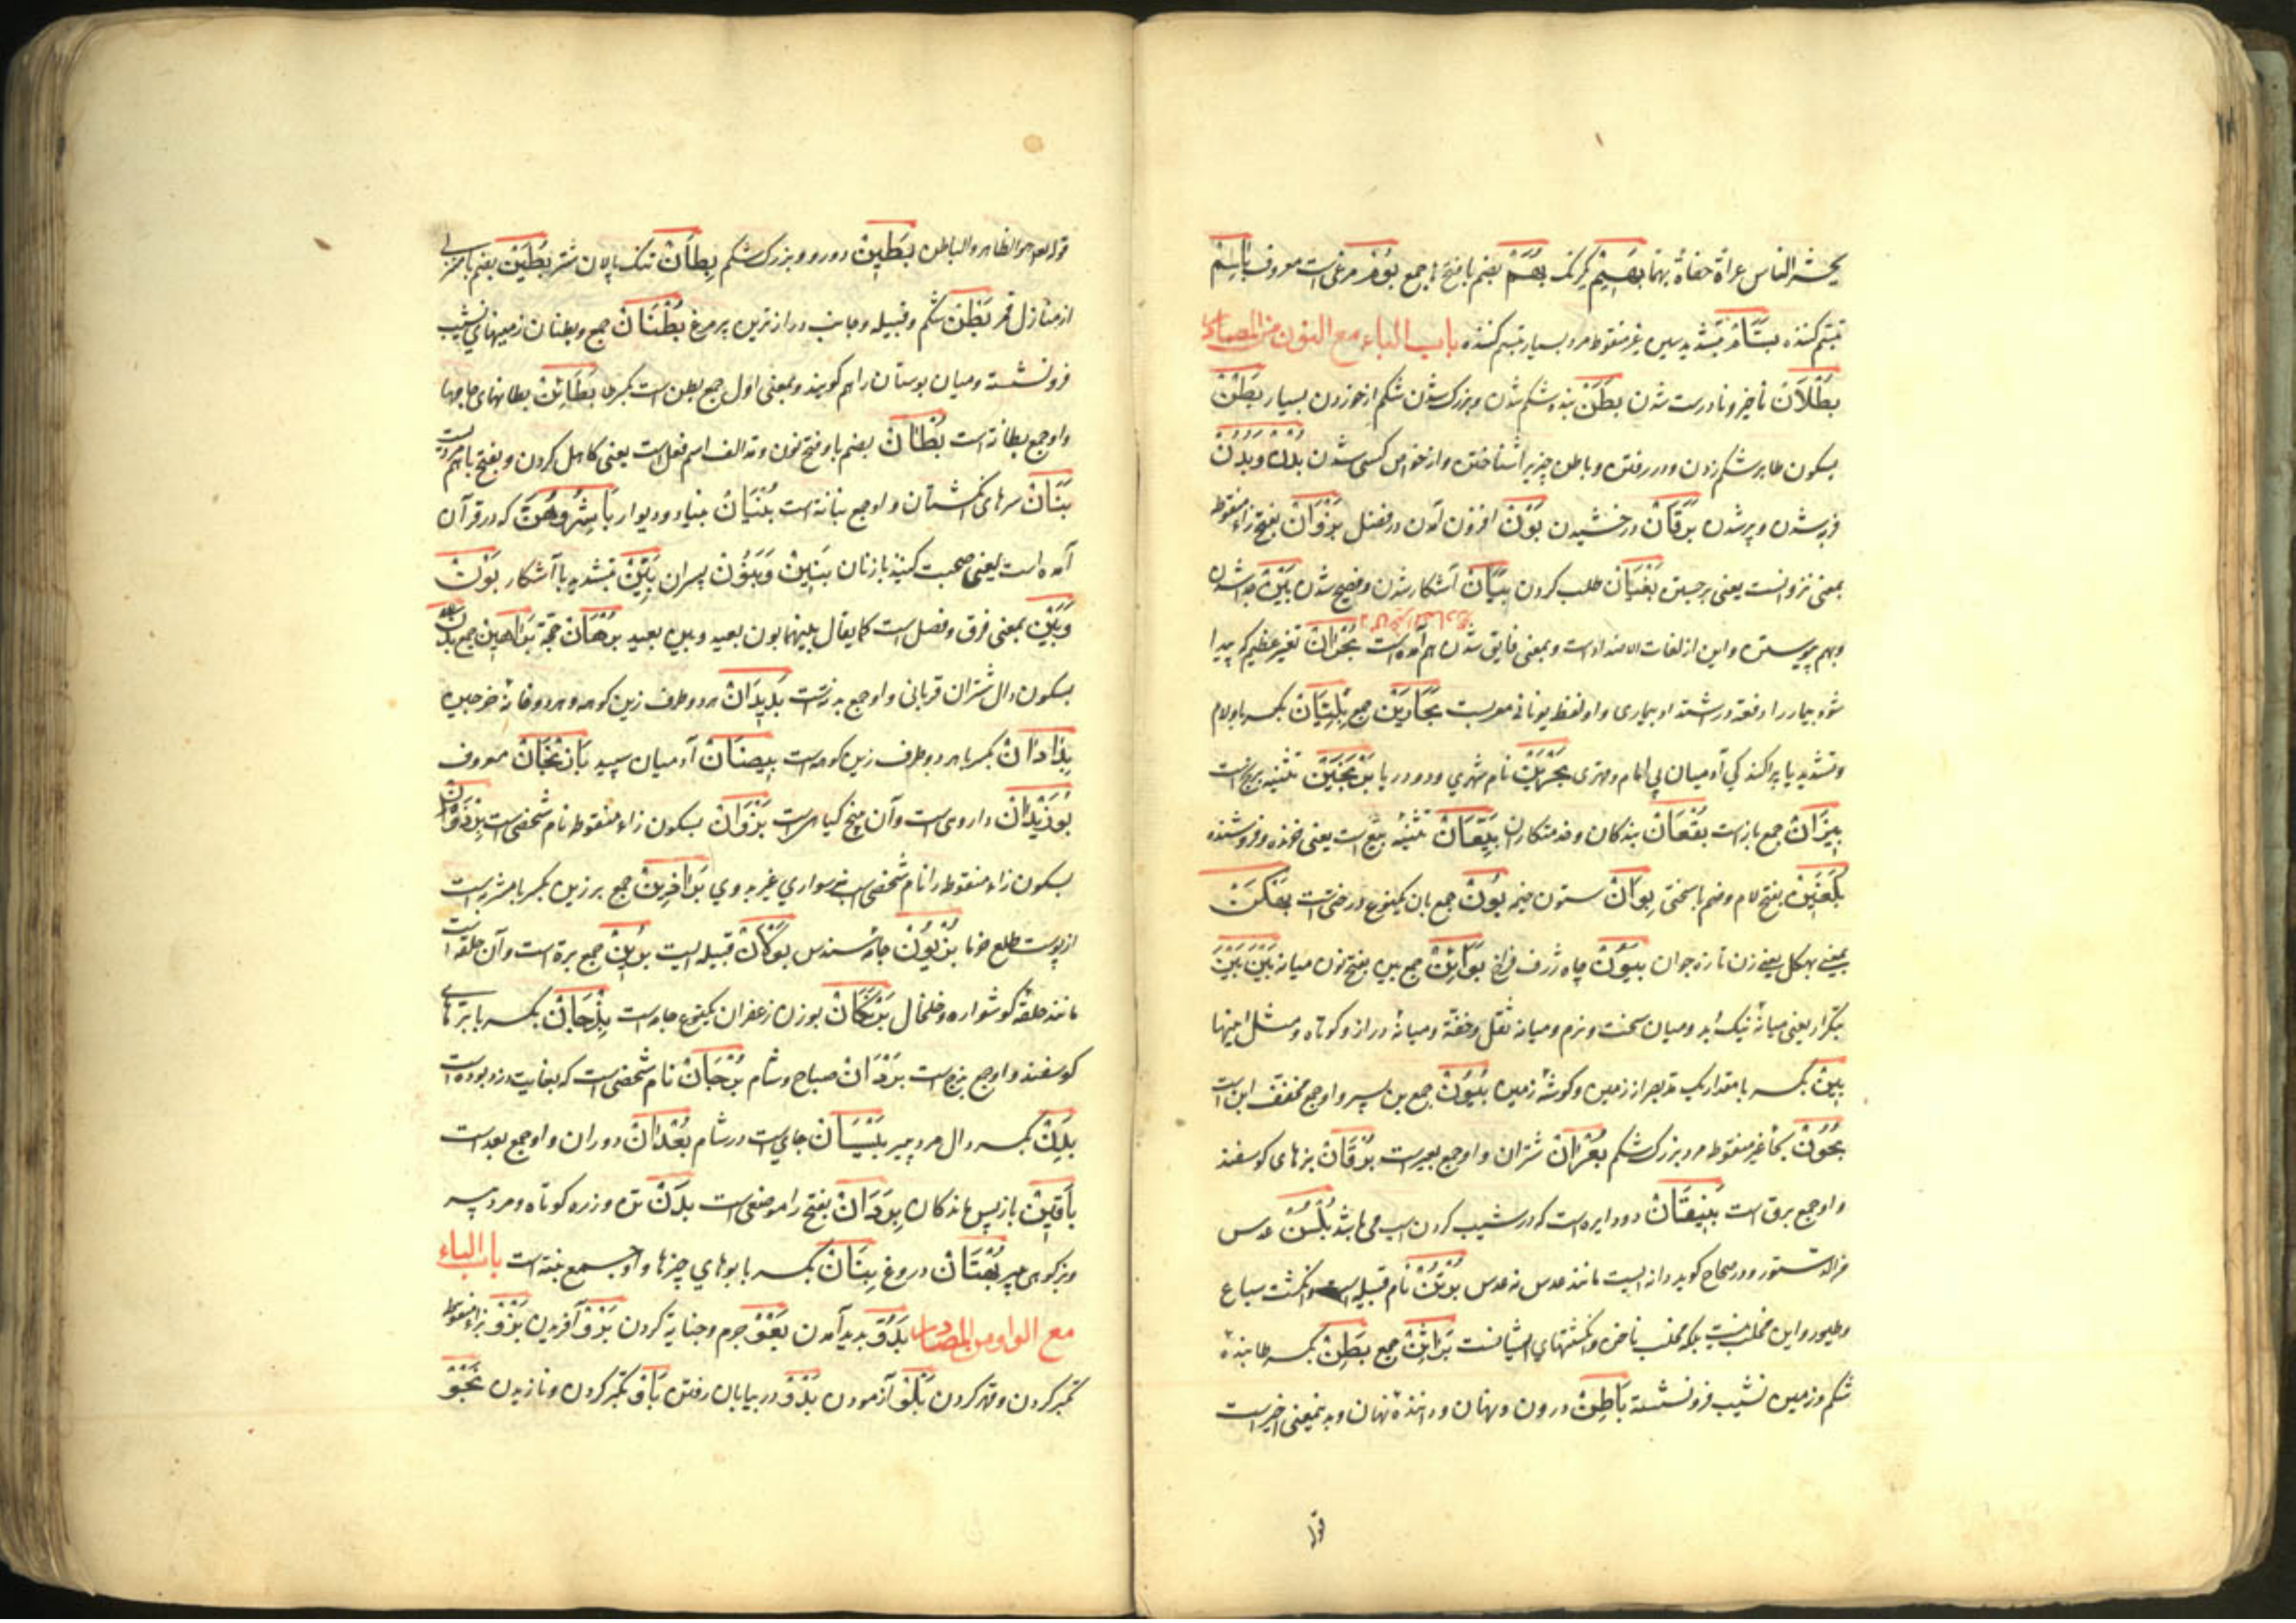 یحشر الناس عراة حفاة بهما بَهِیْمْ یکرنک بُهَمْ بضم با و فتح ها جمع بُوْمْ مرغی است معروف بَاسِمْ
تبسم کننده بَسَّامْ بتشدید سین غیر منقوطه مرد بسیار تبسم کننده باب الباء مع النون من المصادر
بُطْلَانْ ناچیز و نادرست شدن بَطَنْ بنده شکم شدن و بزرک شدن شکم از خوردن بسیار بَطْنْ
بسکون طا بر شکم زدن و در رفتن و باطن چیزیرا شناختن و از خواص کسی شدن بُدْنْ و بُدُنْ
فربه شدن و پر شدن بَرَقَانْ درخشیدن بَوْنْ افزون آمدن در فضل بَزَوَانْ بفتح زاء منقوطه
بمعنی نزوانست یعنی برجستن بُغْیَانْ طلب کردن بَیَانْ آشکار شدن و فصیح شدن بَیْنْ جدا شدن
وبهم پیوستن و این از لغات الاضداد است و بمعنی فایق شدن هم آمده است بُحْرَانْ تغیر عظیم که پیدا
شود بیمار را دفعة در شدت او بیماری و او لفظ یونانی معربست بَحَارِیْنْ جمع بِلِّیَانْ بکسر با و لام
و تشدید یا پراکندکی آدمیان بی امام و مهتری بَحْرَیْنْ نام شهری و دو دریا بَرْنَجَیْنْ تثنیه برنج است
بِیْزَانْ جمع باز است بُقْعَانْ بندکان و خدمتکاران بَیِّعَانْ تثنیهٔ بیّع است یعنی خرنده و فروشنده
بُلَغِیْنْ بفتح لام و ضم با سختی بِوَانْ ستون خیمه بُوْنْ جمع بان یکنوع درختی است بَهْکَنْ
بمعنی بهکل یعنی زن تازه جوان بَیُوْنْ چاه ژرف فراخ بَوَائِنْ جمع بین بفتح نون میانه بَیْنَ بَیْنَ
بتکرار یعنی میانهٔ نیک و بد و میان سخت و نرم و میانه ثقل و خفة و میانهٔ دراز و کوتاه و مثل اینها
بِیْنْ بکسر با مقدار یک مد بصر از زمین و کوشهٔ زمین بَنُوْنْ جمع بن پسر و او جمع مخفف ابن است
بَحْوَنْ بحاء غیر منقوطه مرد بزرک شکم بُعْرَانْ شتران و او جمع بعیر است بُرْقَانْ بزهای کوسفند
و او جمع برق است بَنِیْقَتَانْ دو دایره است که در شیب کردن اسب می باشد بُلُسُنْ عدس
و در صحاح کوید دانه ایست مانند عدس نه عدس بُرْثُنْ نام قبیله است و انکشت سباع
و طیور و این مخلب نیست بلکه مخلب ناخن و انکشتهای ایشانست بَرَاثِنْ جمع بَطِنْ بکسر طا بندهٔ
شکم و زمین نشیب فرونشسته بَاطِنْ درون و نهان و دانندهٔ نهان و بدینمعنی اخیر است
قوله
قوله تعالی هو الظاهر والباطن بَطِیْنْ دور و بزرک شکم بِطَانْ تنک پالان شتر بُطَیْنْ بضم با منزلی
از منازل قمر بَطْنْ شکم و قبیله و جانب درازترین پر مرغ بُطْنَانْ جمع و بطنان زمینهای نشیب
فرونشسته و میان بوستان را هم کویند و بمعنی اول جمع بطن است بکسر طا بَطَائِنْ بطانهای جامها
و او جمع بطانة است بُطْآنْ بضم با و فتح نون و مد الف اسم فعل است یعنی کاهلی کردن و بفتح با هم مرویست
بَنَانْ سرهای انکشتان و او جمع بنانة است بُنْیَانْ بنیاد و دیوار بَاشِرُوْهُنَّ که در قرآن
آمده است یعنی صحبت کنید با زنان بَنِیْنْ وَبَنُوْنْ پسران بَیِّنْ بتشدید یا آشکار بَوْنْ
وَبَیْنْ بمعنی فرق و فصل است کما یقال بینهما بون بعید و بین بعید بُرْهَانْ حجة بَرَاهِیْنْ جمع بُدْنْ
بسکون دال شتران قربانی و او جمع بدنه است بَدِیْدَانْ هر دو طرف زین کوهه و هر دو خانهٔ خرجین
بِدَادَانْ بکسر با هر دو طرف زین کوهه است بِیْضَانْ آدمیان سپید بَاذِنْجَانْ معروف
بُوْزِیْدَانْ داروی است و آن بیخ کیاهی است بَزْوَانْ بسکون زاء منقوطه نام شخصی است
بسکون زاء منقوطه را نام شخصی است جمع برزین بکسر با مشربه ایست
از پوست طلع خرما بُزْیُوْنْ جامهٔ سندس قبیله ایست بُرِیْنْ جمع برة است و آن حلقه است
مانند حلقهٔ کوشواره و خلخال بَرَّنَکَانْ بوزن زعفران یکنوع جامه است بِذْجَانْ بکسر با بره های
کوسفند و او جمع بذج است بَرْدَانْ صباح و شام بُرْجَانْ نام شخصی است که بغایت دزد بوده است
بَدِنْ بکسر دال مرد پیر بَیْسَانْ جای است در شام بُعْدَانْ دوران و او جمع بعد است
بَاقِیْنْ باز پس ماندکان بَرَدَانْ بفتح را موضعی است بَدَنْ تن و زره کوتاه و مرد پیر
و بز کوهی پیر بُهْتَانْ دروغ بِنَانْ بکسر با بوهای چیزها و او جمع بنة است باب الباء
مع الواو من المصادر بَدْوْ پدید آمدن بَعْوْ جرم و جنایة کردن بَرْوْ آفریدن بَزْوْ بزاء منقوطه
تکبر کردن و قهر کردن بَلْوْ آزمودن بَدْوْ در بیابان رفتن بَاوْ تکبر کردن و نازیدن